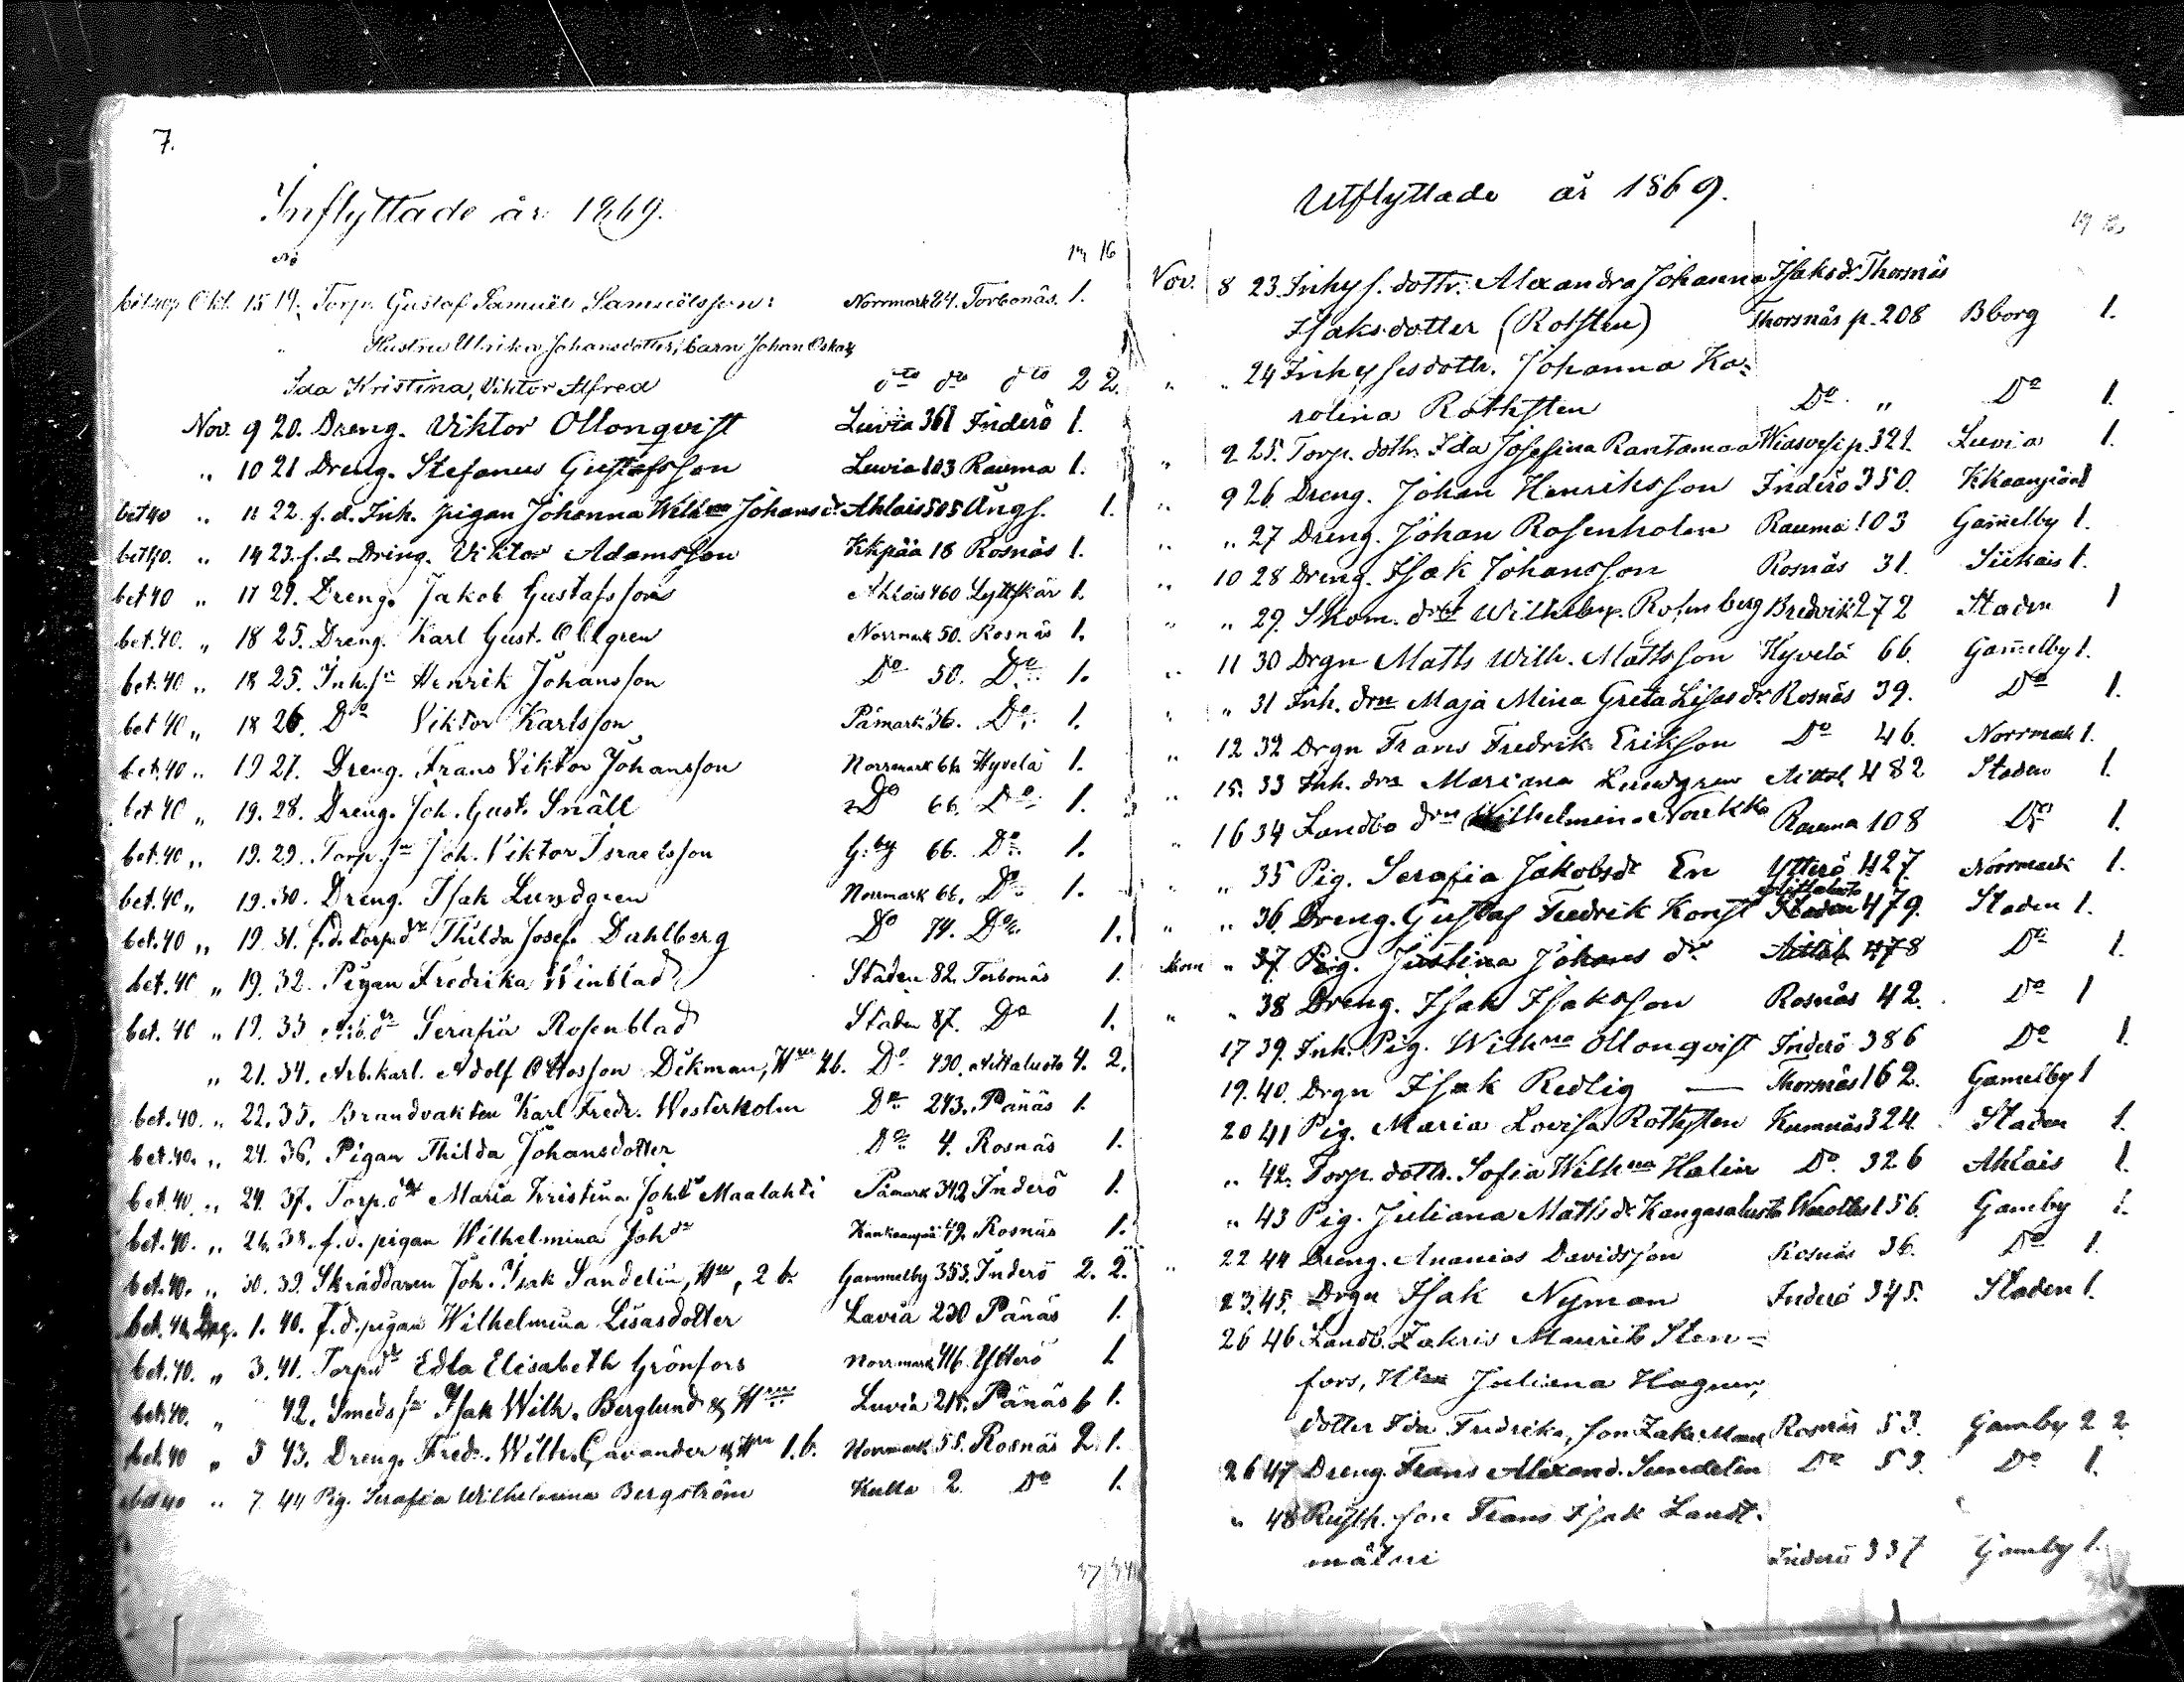 7.
Inflyttade år 1869.
No
bet 40 p Okt. 15 19. Torp. Gustaf Samuel Samuelsson: Norrmark 24. Torbonäs. 1.
Hustru Ulrika Johansdotter, barn Johan Oskar,
Ida Kristina, Viktor Alfred dto do dto 2 2.
Nov. 9 20. Dreng. Viktor Ollonqvist Luvia 361 Inderö 1.
" 10 21 Dreng. Stefanus Gustafsson Luvia 103 Rauma 1.
bet 40 " 11 22. f.d. Inh. pigan Johanna Wilhma Johansdr Ahlais 505 Ängs. 1.
bet 40. " 14 23. f.d. Dreng. Viktor Adamsson Kkpää 18 Rosnäs 1.
bet 40 " 17 24. Dreng. Jakob Gustafsson Ahlais 460 Lyttskär 1.
bet. 40. " 18 25. Dreng. Karl Gust. Ollgren Norrmark 50. Rosnäs 1.
bet. 40 " 18 25. Inh.sn Henrik Johansson Do 50. Do 1.
bet 40 " 18 26. Do Viktor Karlsson Påmark 36. Do 1.
bet. 40 " 19 27. Dreng. Frans Viktor Johansson Norrmark 66. Hyvelä 1.
bet 40 " 19. 28. Dreng. Joh. Gust. Snäll Do 66. Do 1.
bet. 40 " 19. 29. Torp.sn Joh. Viktor Israelsson G:by 66. Do 1.
bet. 40 " 19. 30. Dreng. Isak Lundgren Norrmark 66. Do 1.
bet. 40 " 19. 31. f.d. torp.dr Thilda Josef. Dahlberg Do 74. Do 1.
bet. 40 " 19. 32. Pigan Fredrika Winblad Staden 82. Torbonäs 1.
bet. 40 " 19. 33 Serafia Rosenblad Staden 87. Do 1.
" 21. 34. Arb.karl. Adolf Ottosson Dikman, Hru 4 b. Do 430. Aittaluoto 4. 2.
bet. 40. " 22. 35. Brandvakten Karl Fredr. Westerholm Do 243. Pänäs 1.
bet. 40. " 24. 36. Pigan Thilda Johansdotter Do 4. Rosnäs 1.
bet. 40. " 24. 37. Torp.dr Maria Kristina Johdr Maalahti Påmark 342 Inderö 1.
bet. 40. " 26. 38. f.d. pigan Wilhelmina Johdr Kankaanpää 49. Rosnäs 1.
bet. 40. " 30. 39. Skräddaren Joh. Isak Sandelin, Hru, 2 b. Gammelby 353. Inderö 2. 2.
bet. 40. Dec. 1. 40. f.d. pigan Wilhelmina Lisasdotter Lavia 230 Pänäs 1.
bet. 40. " 3. 41. Torp.dr Edla Elisabeth Grönfors Norrmark 416 Ytterö 1
bet. 40. " 42. Smeds sn Isak Wilh. Berglund & Hru Luvia 215. Pänäs 1.
bet. 40 " 5 43. Dreng. Fredr. Wilh. Cavander & Hru 1. b. Norrmark 55. Rosnäs 2. 1.
bet 40 " 7. 44 Pig. Serafia Wilhelmina Bergström Kulla 2. Do 1.
Utflyttade år 1869.
Nov. 8 23. Inhys. dottr. Alexandra Johanna Isaksdr. Thorsnäs
Isaksdotter (Rotsten) Thorsnäs p. 208 Bborg 1.
" " 24 Inhysesdottr. Johanna Ka-
rolina Rothsten Do " Do 1.
" 9 25. Torp. dottr. Ida Josefina Rantamaa Wiasvesi p. 321. Luvia 1.
" 9 26. Dreng. Johan Henriksson Inderö 350. Kkaanpää 1
" " 27 Dreng. Johan Rosenholm Rauma 103 Gammelby 1.
" 10 28 Dreng. Isak Johansson Rosnäs 31. Siikais 1.
" " 29. Skom. Rosenberg Bredvik 272 Staden 1
" 11 30 Drgn Matts Wilh. Mattsson Hyvelä 66. Gammelby 1.
" " 31 Inh. drn Maja Mina Greta Lisasdr. Rosnäs 39. Do 1.
" 12 32 Drgn Frans Fredrik Eriksson Do 46. Norrmark 1.
" 15. 33 Inh. drn Mariana Lundgren Aittal. 482 Staden 1.
" 16 34 Landbo drn Wilhelmina Norkko Rauma 108 Do 1.
" " 35 Pig. Serafia Jakobsdr En Ytterö 427. Norrmark 1.
Aittaluoto
" " 36. Dreng. Gustaf Fredrik Konst Staden 479. Staden 1.
" 37. Pig. Justina Johans dr Aittal. 478 Do 1.
" " 38 Dreng. Isak Isaksson Rosnäs 42. Do 1
17 39. Inh. Pig. Wilhma Ollonqvist Inderö 386 Do 1.
19. 40. Drgn Isak Redlig — Thorsnäs 162. Gamelby 1
20 41 Pig. Maria Lovisa Rothsten Kumnäs 324. Staden 1.
" 42. Torp. dottr. Sofia Wilhma Halin Do. 326 Ahlais 1.
" 43 Pig. Juliana Mattsdr Kangasaluoto 156. Gamby 1.
" 22 44 Dreng. Ananias Davidsson Rosnäs 36. Do 1.
23. 45. Drgn Isak Nyman Inderö 345. Staden 1.
26 46 Landb. Zakris Maurits Sten-
fors, Htru Juliana Hagner,
dotter Ida Fredrika, son Zakr. Maur. Rosnäs 53. Gamby 2 2
26 47 Dreng. Frans Alexand. Sundelin Do 53. Do 1.
" 48 Rusth. son Frans Isak Landt-
mätri Inderö 337 Gamby 1.